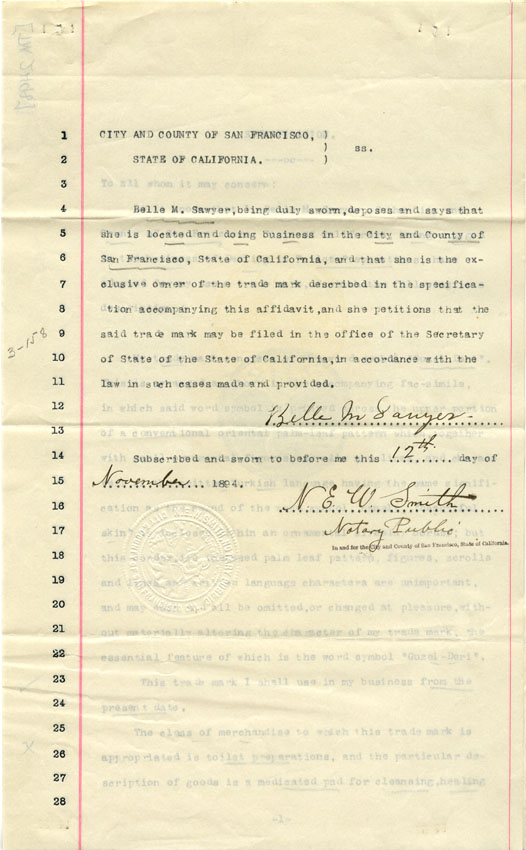 1 CITY AND COUNTY OF SAN FRANCISCO, )
) ss.
2 STATE OF CALIFORNIA. )
3 To all whom it may concern:
4 Belle M. Sawyer,being duly sworn,deposes and says that
5 she is located and doing business in the City and County of
6 San Francisco, State of California, and that she is the ex-
7 clusive owner of the trade mark described in the specifica-
8 tion accompanying this affidavit,and she petitions that the
9 said trade mark may be filed in the office of the Secretary
3-158
10 of State of the State of California,in accordance with the
11 law in such cases made and provided.
12 Belle M Sawyer
13
14 Subscribed and sworn to before me this 12th day of
15 November 1894.
16 N. E. W. Smith
17 Notary Public
In and for the City and County of San Francisco, State of California.
18
19 language characters are unimportant,
20 and may be omitted,or changed at pleasure,with-
21 out materially altering the character of my trade mark, the
22 essential feature of which is the word symbol "Guzei-Dori".
23 This trade mark I shall use in my business from the
24 present date.
25 The class of merchandise to which this trade mark is
26 appropriated is toilet preparations, and the particular de-
27 scription of goods is a medicated pad for cleansing,healing
28
-1-